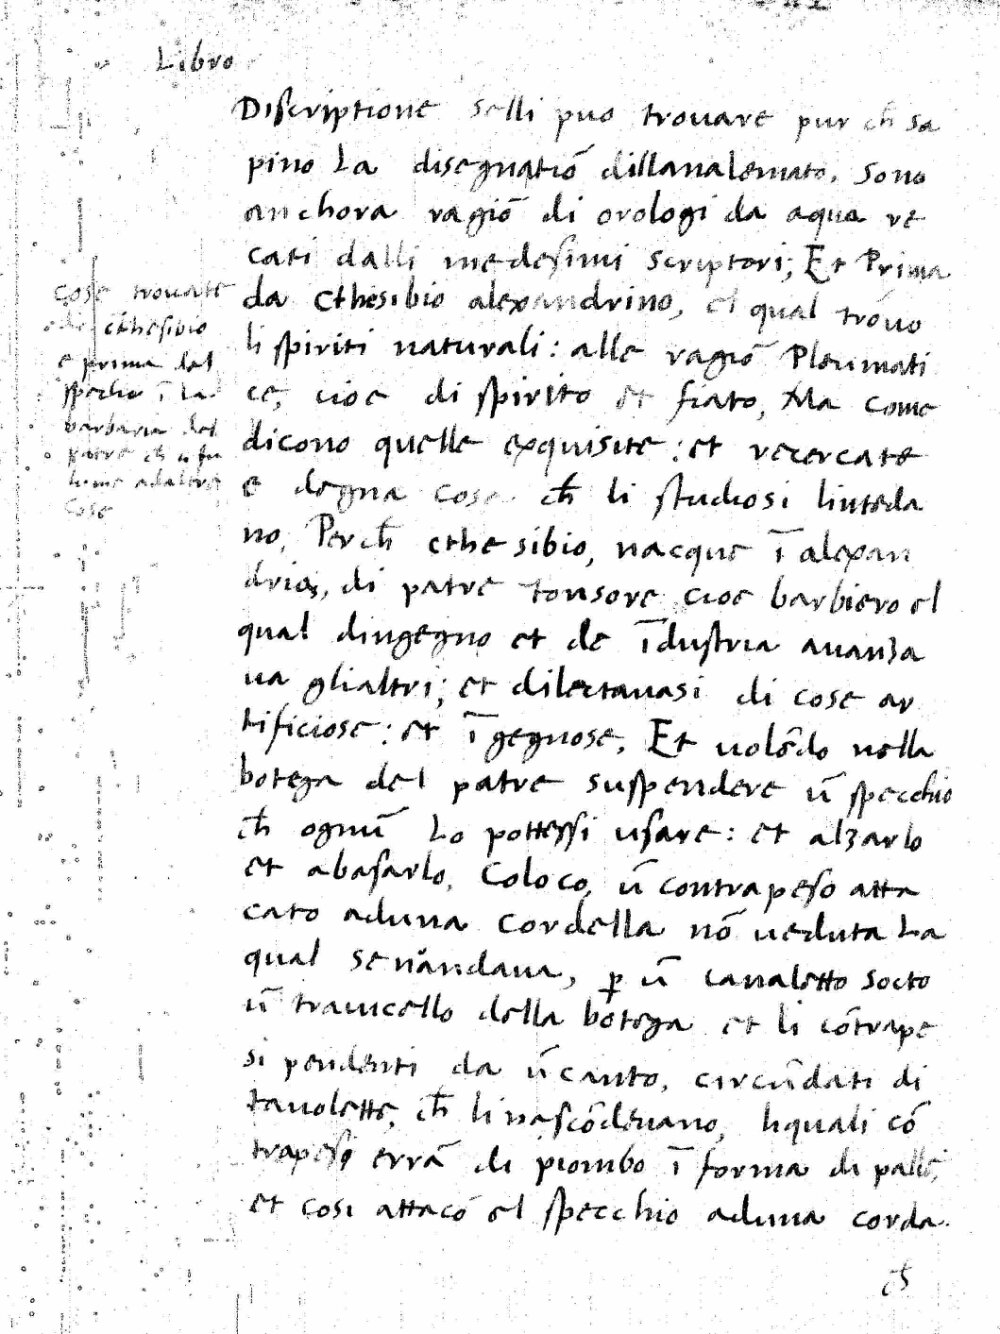 Libro
Discriptione selli puo trouare pur ch̄ sa
pino La disegnatiō dillanalemato. Sono
anchora ragiō di orologi da aqua re
cati dalli medesimi scriptori; Et Prima
da Cthesibio alexandrino, el qual trouo
li spiriti naturali: alle ragiō Pleumati
ce, cioe di spirito et fiato, Ma come
dicono quelle exquisite: et recercate
e degna cose ch̄ li studiosi lintēda
no, Perch̄ cthesibio, nacque ī alexan
dria, di patre tonsore cioe barbiero el
qual dingegno et de īdustria auanza
ua glialtri; et dilectauasi di cose ar
tificiose: et īgegnose, Et uolēdo nella
botega del patre suspendere ū specchio
ch̄ ognū Lo pottessi usare: et alzarlo
et abasarlo, Coloco, ū contrapeso atta
cato aduna Cordella nō ueduta La
qual senandaua, p ū canaletto socto
ū trauicello della botega et li cōtrape
si pendenti da ūcanto, circūdati di
tauolette, ch̄ li nascōdeuano, liquali cō
trapesi errā di piombo ī forma di palle,
et cosi attaco el specchio aduna corda
ch̄
cose trouate
da cthesibio
e prima del
specchio ī la
barbaria del
patre ch̄ u fu
lume adaltre
Cose